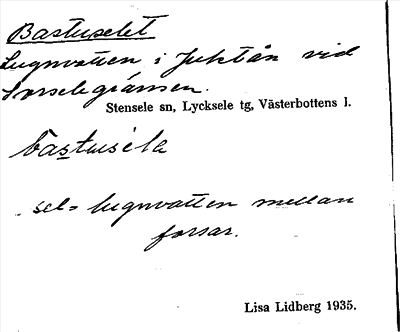 Bastuselet
Lugnvatten i Juktån vid
Sorselegränsen.
Stensele sn, Lycksele tg, Västerbottens l.
bastusela
sel = lugnvatten mellan
forsar.
Lisa Lidberg 1935.